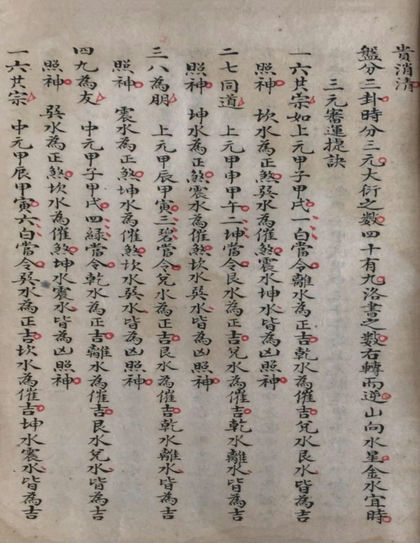 貴消清
盤分三卦時分三元大衍之數四十有九洛書之數右轉而逆山向水星金水宜時
三元審運提訣
一六共宗如上元甲子甲戌一白當令離水為正吉乾水為催吉兌水艮水皆為吉
照神 坎水為正煞巽水為催煞震水坤水皆為凶照神
二七同道 上元甲申甲午二坤當令艮水為正吉兌水為催吉乾水離水皆為吉
照神 坤水為正煞震水為催煞坎水巽水皆為凶照神
三八為朋 上元甲辰甲寅三碧當令兌水為正吉艮水為催吉乾水離水皆為吉
照神 震水為正煞坤水為催煞坎水巽水皆為凶照神
四九為友 中元甲子甲戌四綠當令乾水為正吉離水為催吉艮水兌水皆為吉
照神 巽水為正煞坎水為催煞坤水震水皆為凶照神
一六共宗 中元甲辰甲寅六白當令巽水為正吉坎水為催吉坤水震水皆為吉